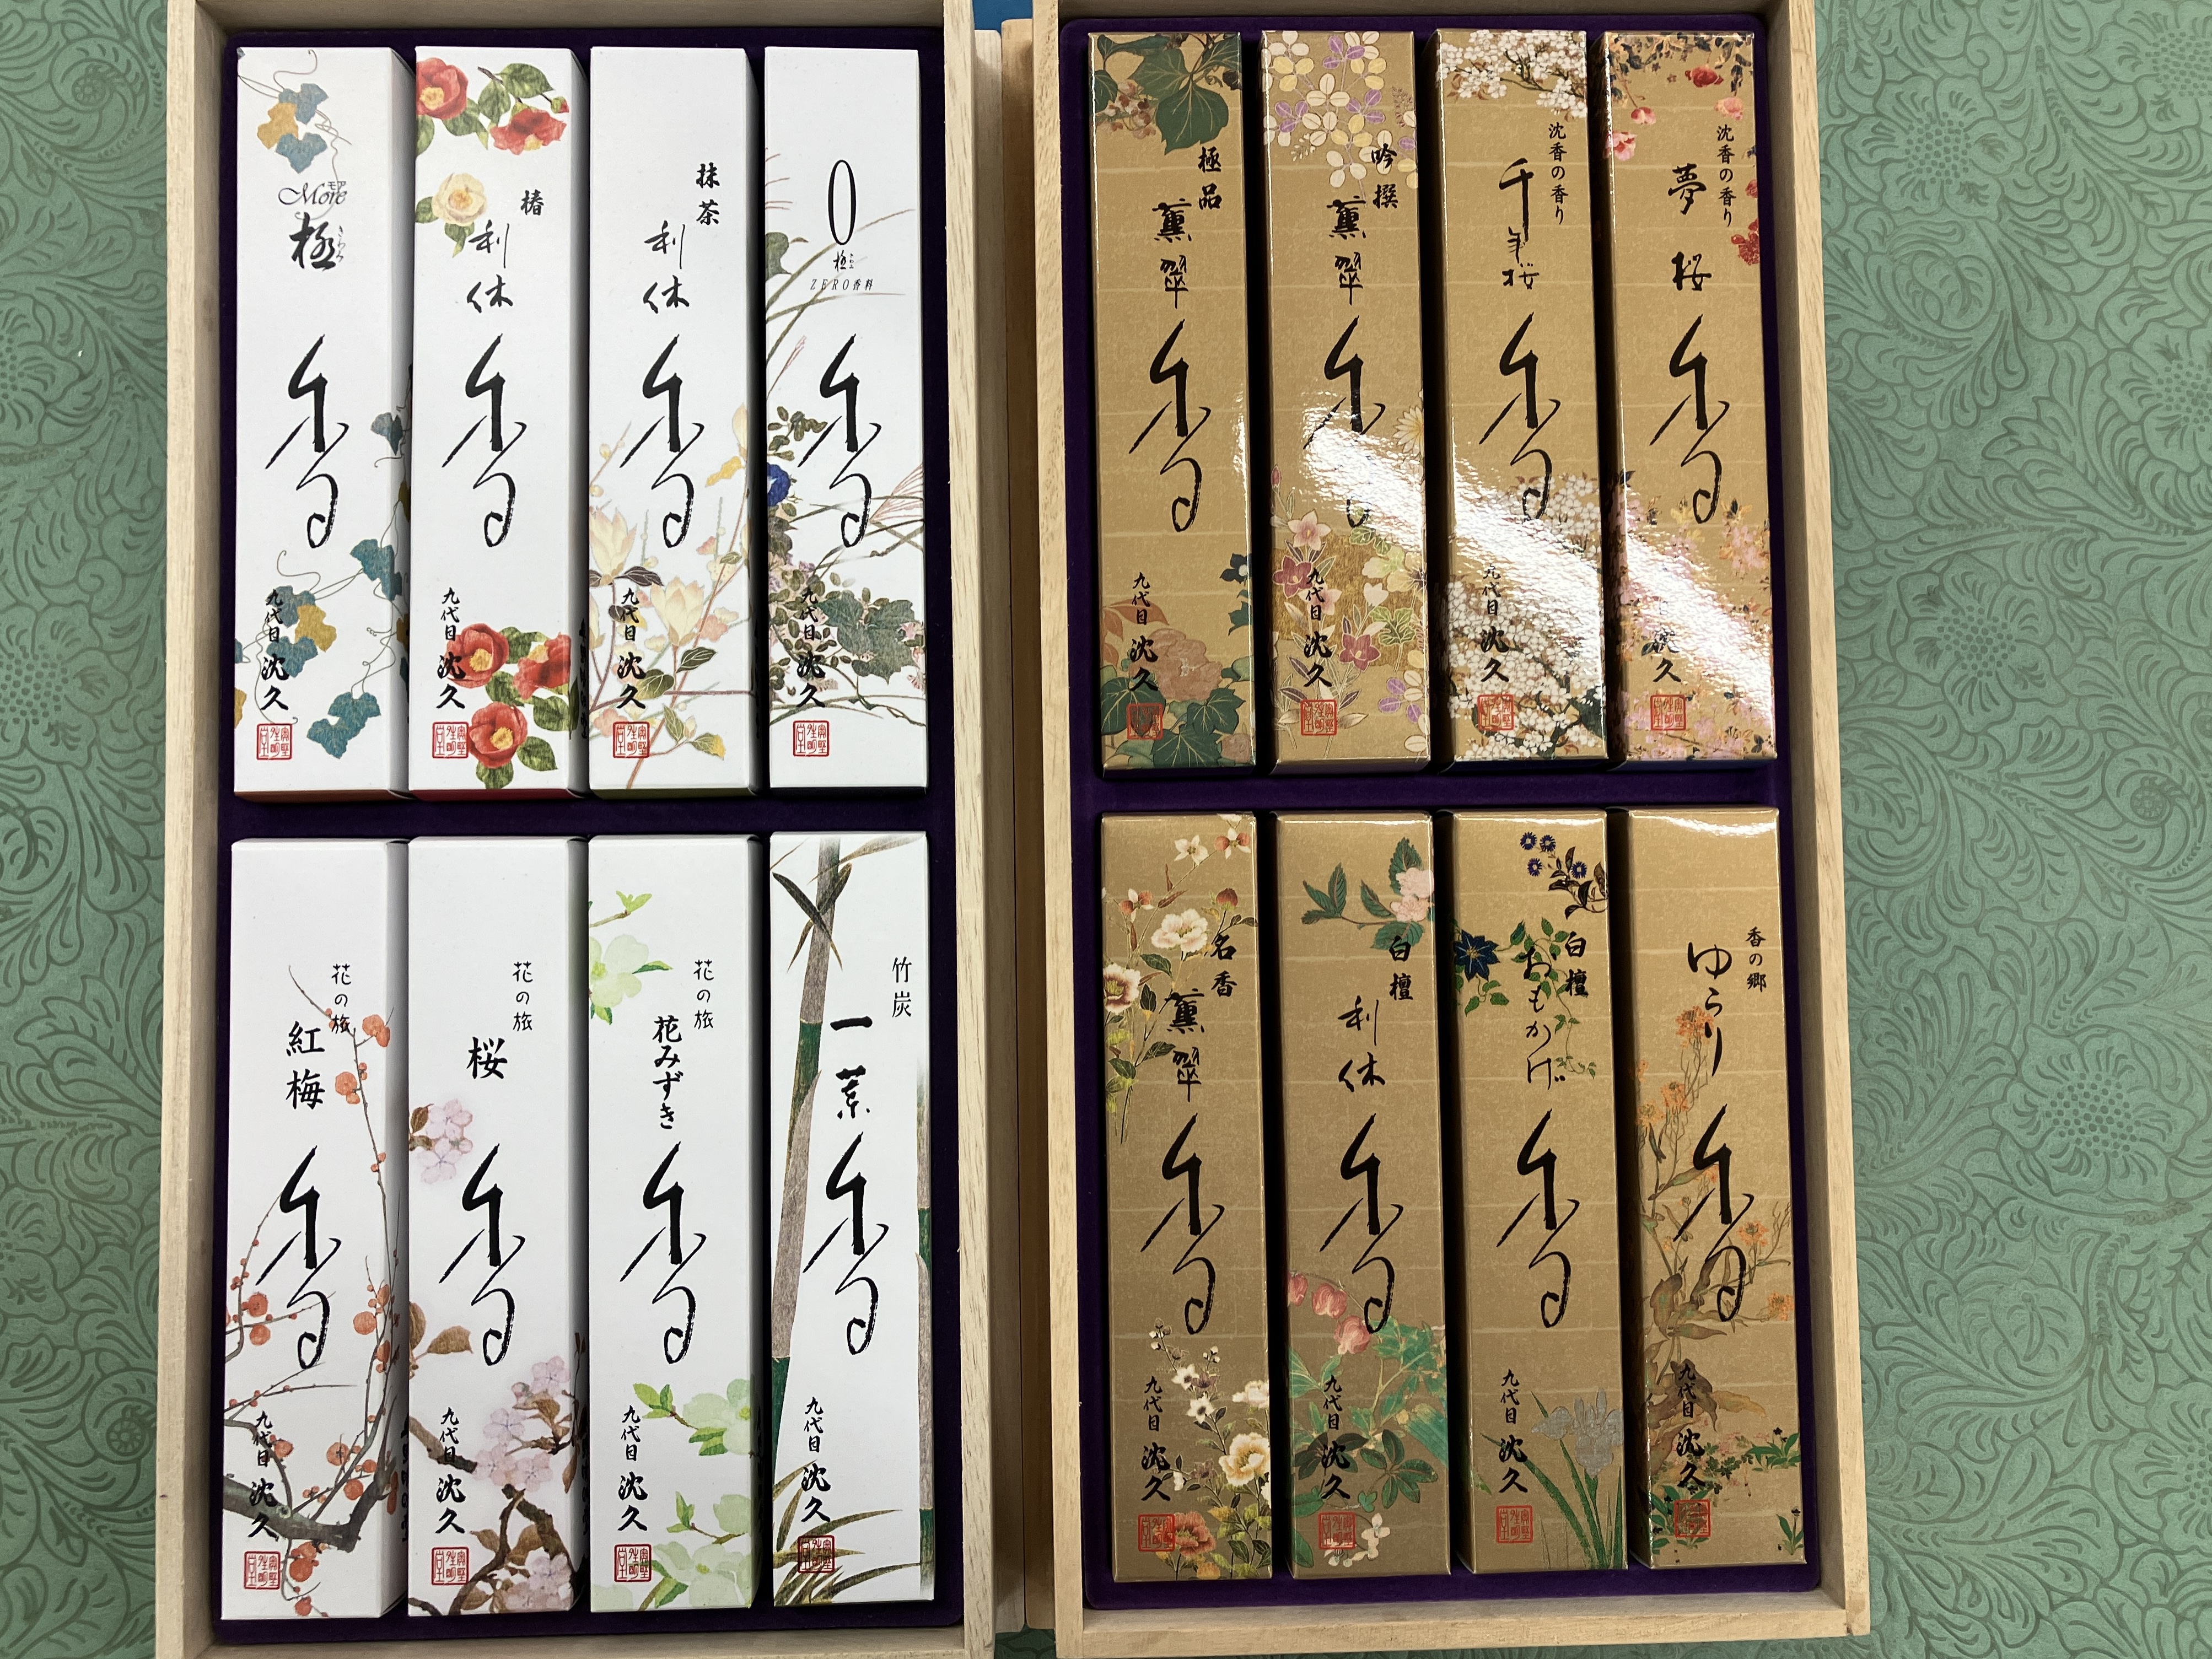 More モア
極 きわみ
香
九代目 沈久
椿
利休
香
九代目 沈久
抹茶
利休
香
九代目 沈久
0
極 きわみ
ZERO香料
香
九代目 沈久
極品
薫翠
香
九代目 沈久
吟撰
薫翠
香
九代目 沈久
沈香の香り
千年桜
香
九代目 沈久
沈香の香り
夢桜
香
沈久
花の旅
紅梅
香
九代目 沈久
花の旅
桜
香
九代目 沈久
花の旅
花みずき
香
九代目 沈久
竹炭
一葉
香
九代目 沈久
名香
薫翠
香
九代目 沈久
白檀
利休
香
九代目 沈久
白檀
おもかげ
香
九代目 沈久
香の郷
ゆらり
香
九代目 沈久